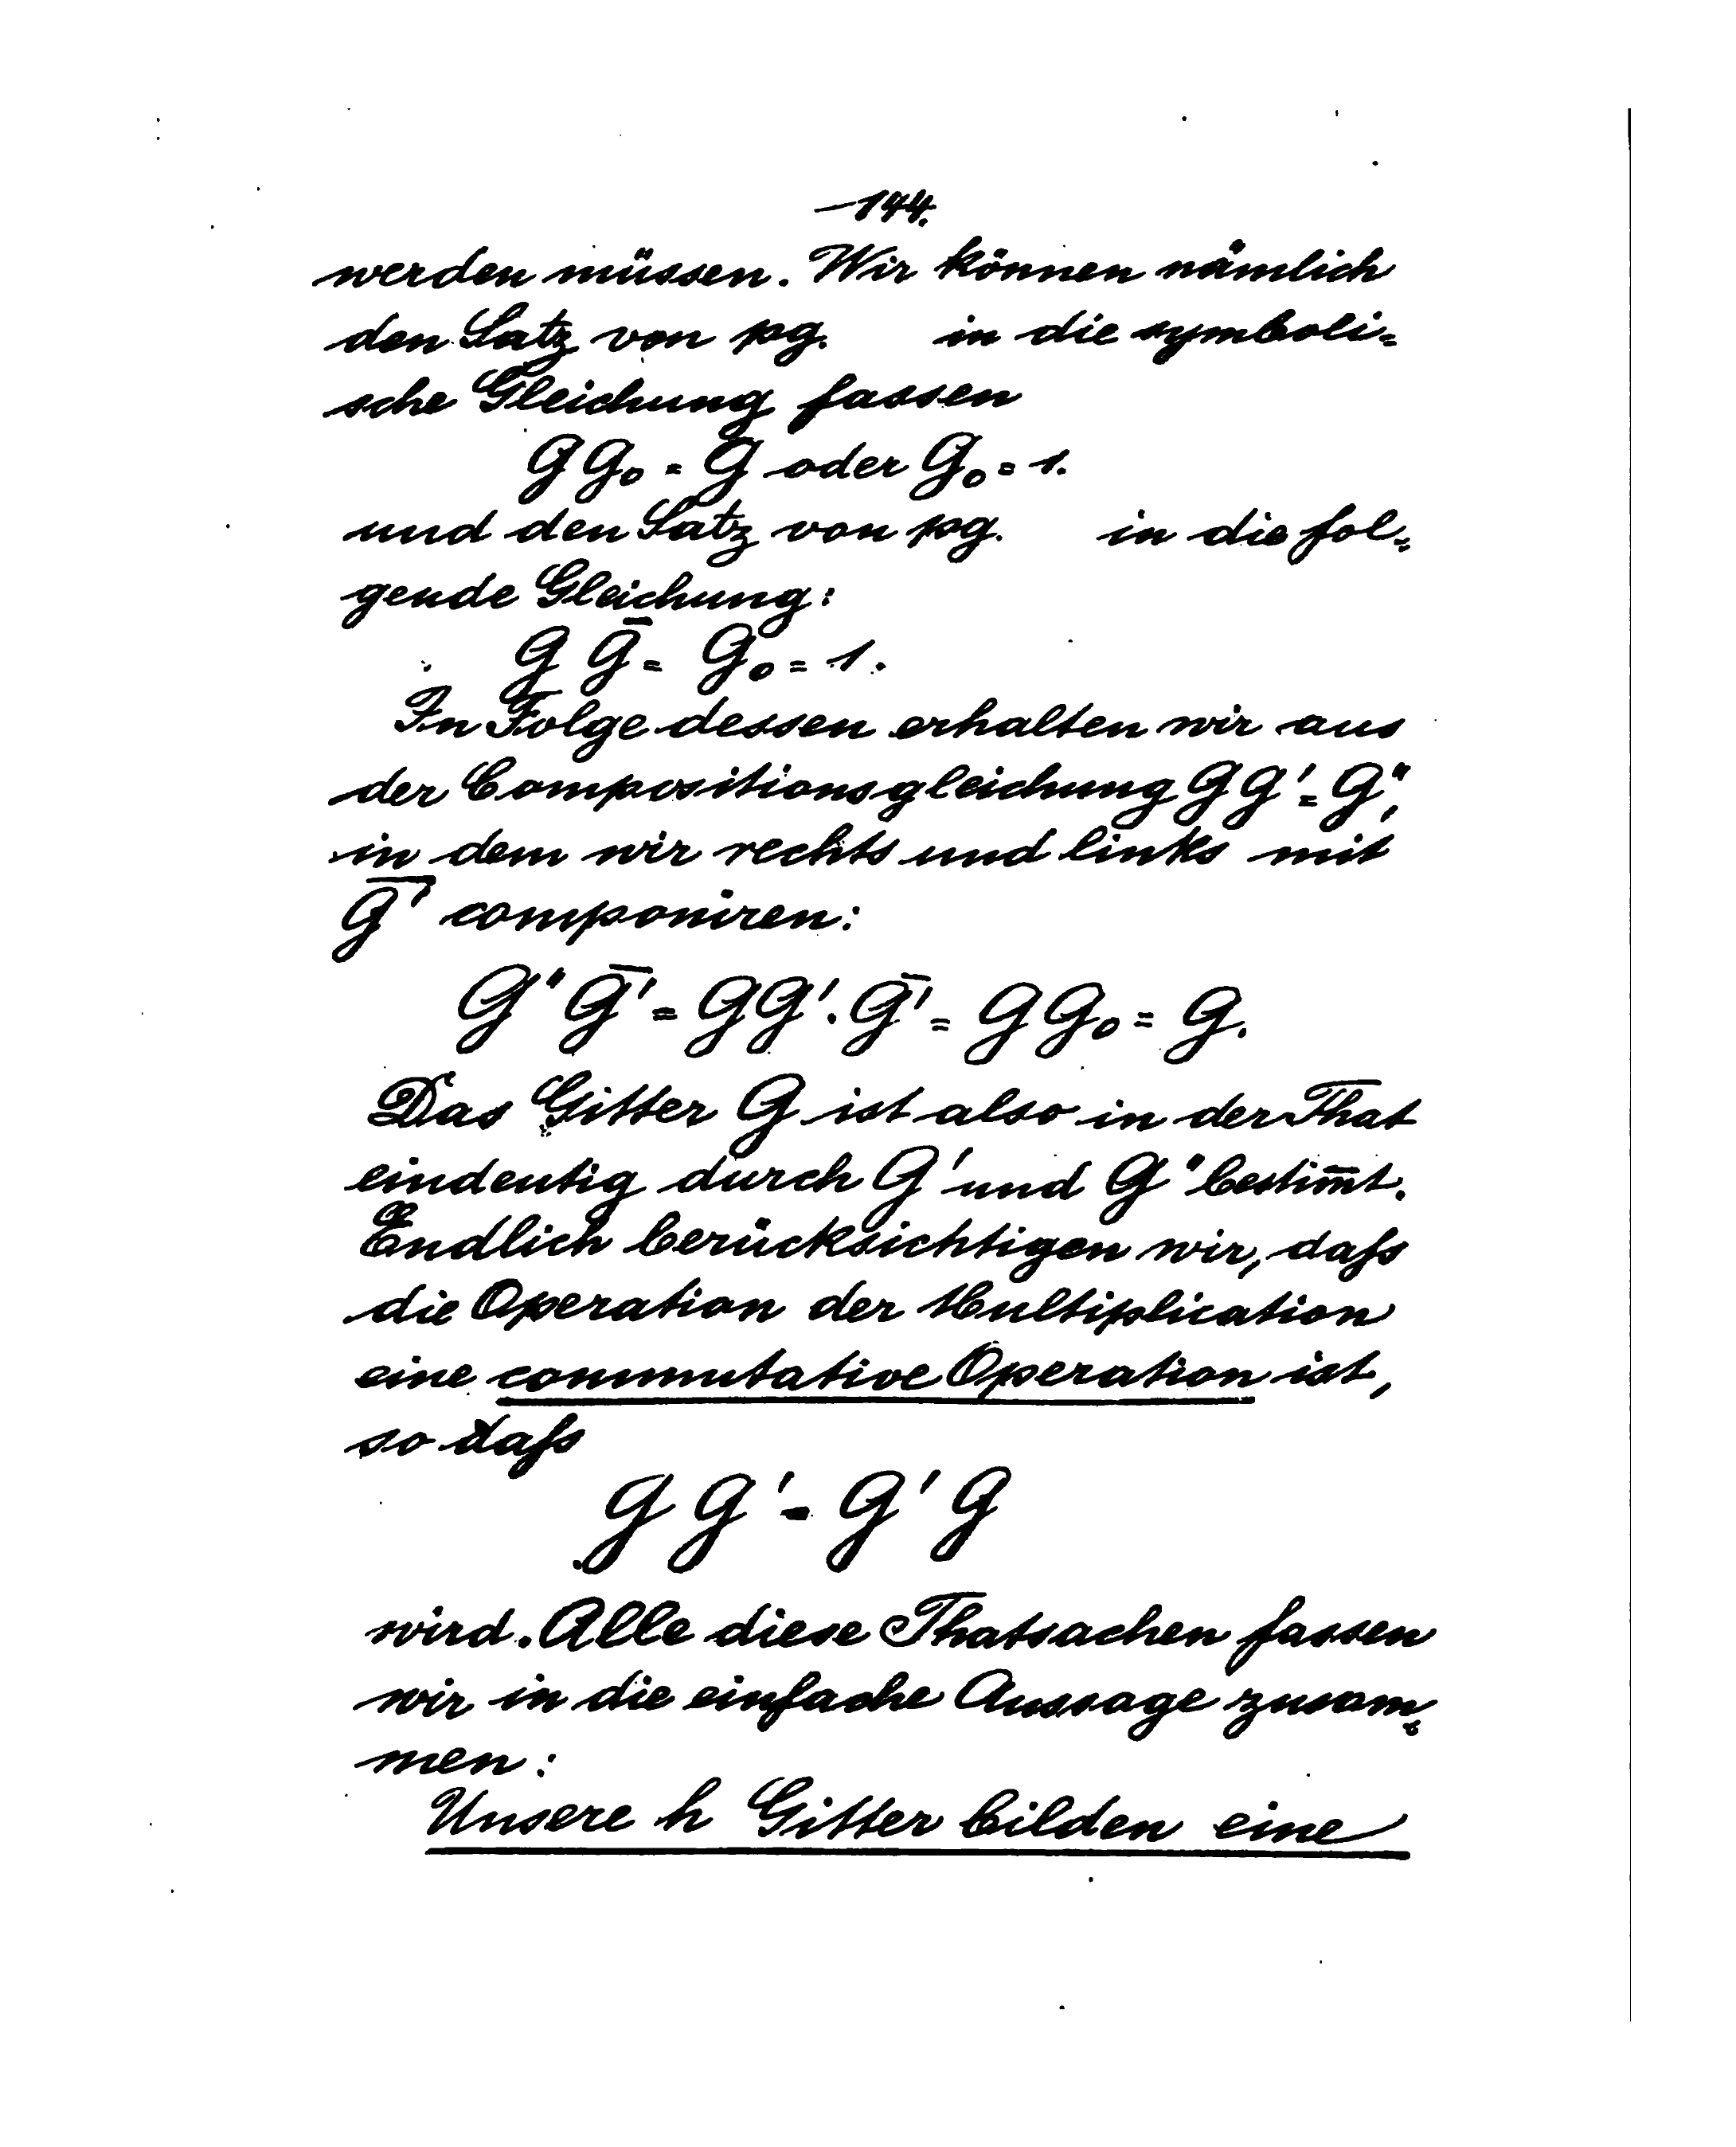 —144.
werden müssen. Wir können nämlich
den Satz von pg. in die symboli=
sche Gleichung fassen
G G₀ = G oder G₀ = 1.
und den Satz von pg. in die fol=
gende Gleichung:
G G̅ = G₀ = 1.
In Folge dessen erhalten wir aus
der Compositionsgleichung G G' = G",
in dem wir rechts und links mit
G̅' componiren:
G" G̅' = G G'. G̅' = G G₀ = G.
Das Gitter G ist also in der That
eindeutig durch G' und G" bestim̅t.
Endlich berücksichtigen wir, daſs
die Operation der Multiplication
eine commutative Operation ist,
so daſs
G G' = G' G
wird. Alle diese Thatsachen fassen
wir in die einfache Aussage zusam=
men:
Unsere h Gitter bilden eine